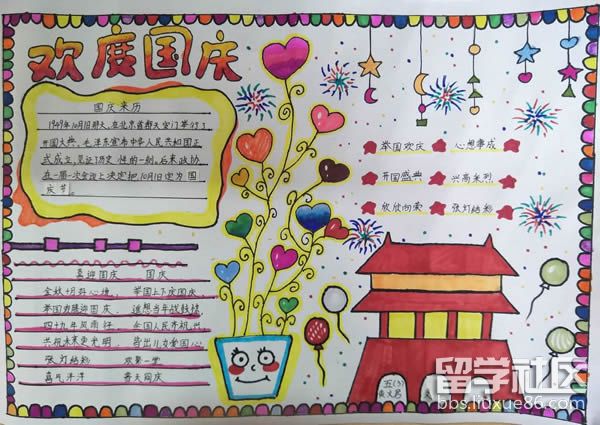 欢度国庆
国庆来历
1949年10月1日那天,在北京首都天安门举行了
开国大典,毛泽东宣布中华人民共和国正
式成立,见证了历史性的一刻,后来政协
在一届一次会议上决定把10月1日定为国
庆节。
举国欢庆 心想事成
开国盛典 兴高采烈
欣欣向荣 张灯结彩
喜迎国庆 国庆
金秋十月好心境, 举国上下庆国庆
举国欢腾迎国庆, 追想当年战鼓擂
四十九年风雨行 全国人民齐祝兴
共祝未来更光明, 唇出儿女爱国心
张灯结彩 欢聚一堂
喜气洋洋 普天同庆
五(3)
留学社区
bbs.liuxue86.com